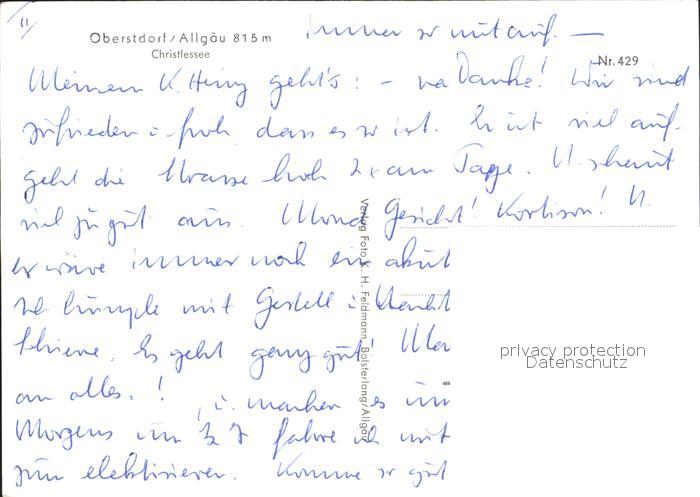 Oberstdorf/Allgäu 815 m
Christlessee
Nr. 429
immer so mit auf. —
Meinem K. Heinz geht's: – na Danke! Wir sind
zufrieden u. froh dass es so ist. Er ist viel auf.
geht die Strasse hoch 2x am Tage. U. scheint
viel zu gut aus. Mond Gesicht! Kortison! U.
es wäre immer noch ein akut
mit Gestell u.
Schiene. Es geht ganz gut!
an alles.! u. machen es im
Morgens um fahre ich mit
zum elektrisieren. Komme so gut
Verlag Foto K. H. Feldmann, Bolsterlang/Allgäu
privacy protection
Datenschutz